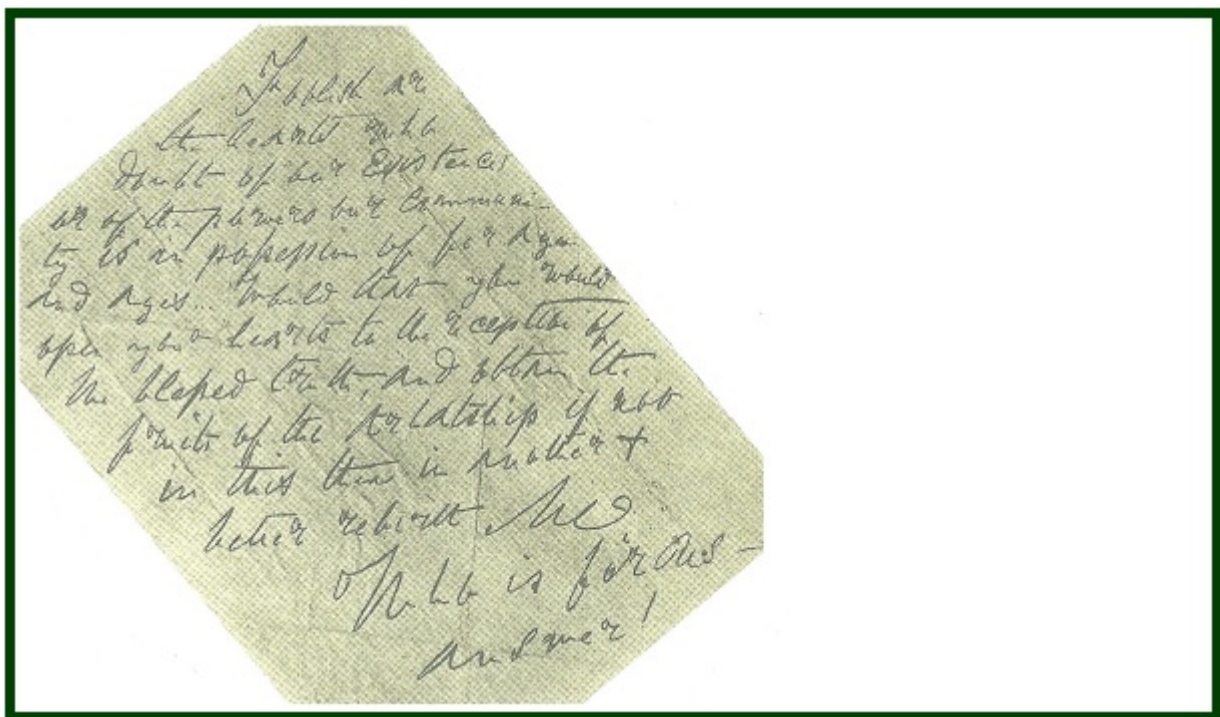 Foolish are
the hearts who
doubt of our Existence!
or of the powers our Communi-
ty is in possession of for ages
and ages... Would that you would
open your hearts to the reception of
the blessed truth, and obtain the
fruits of the Arhatship if not
in this then in another &
better rebirth
Who is for us—
answer!